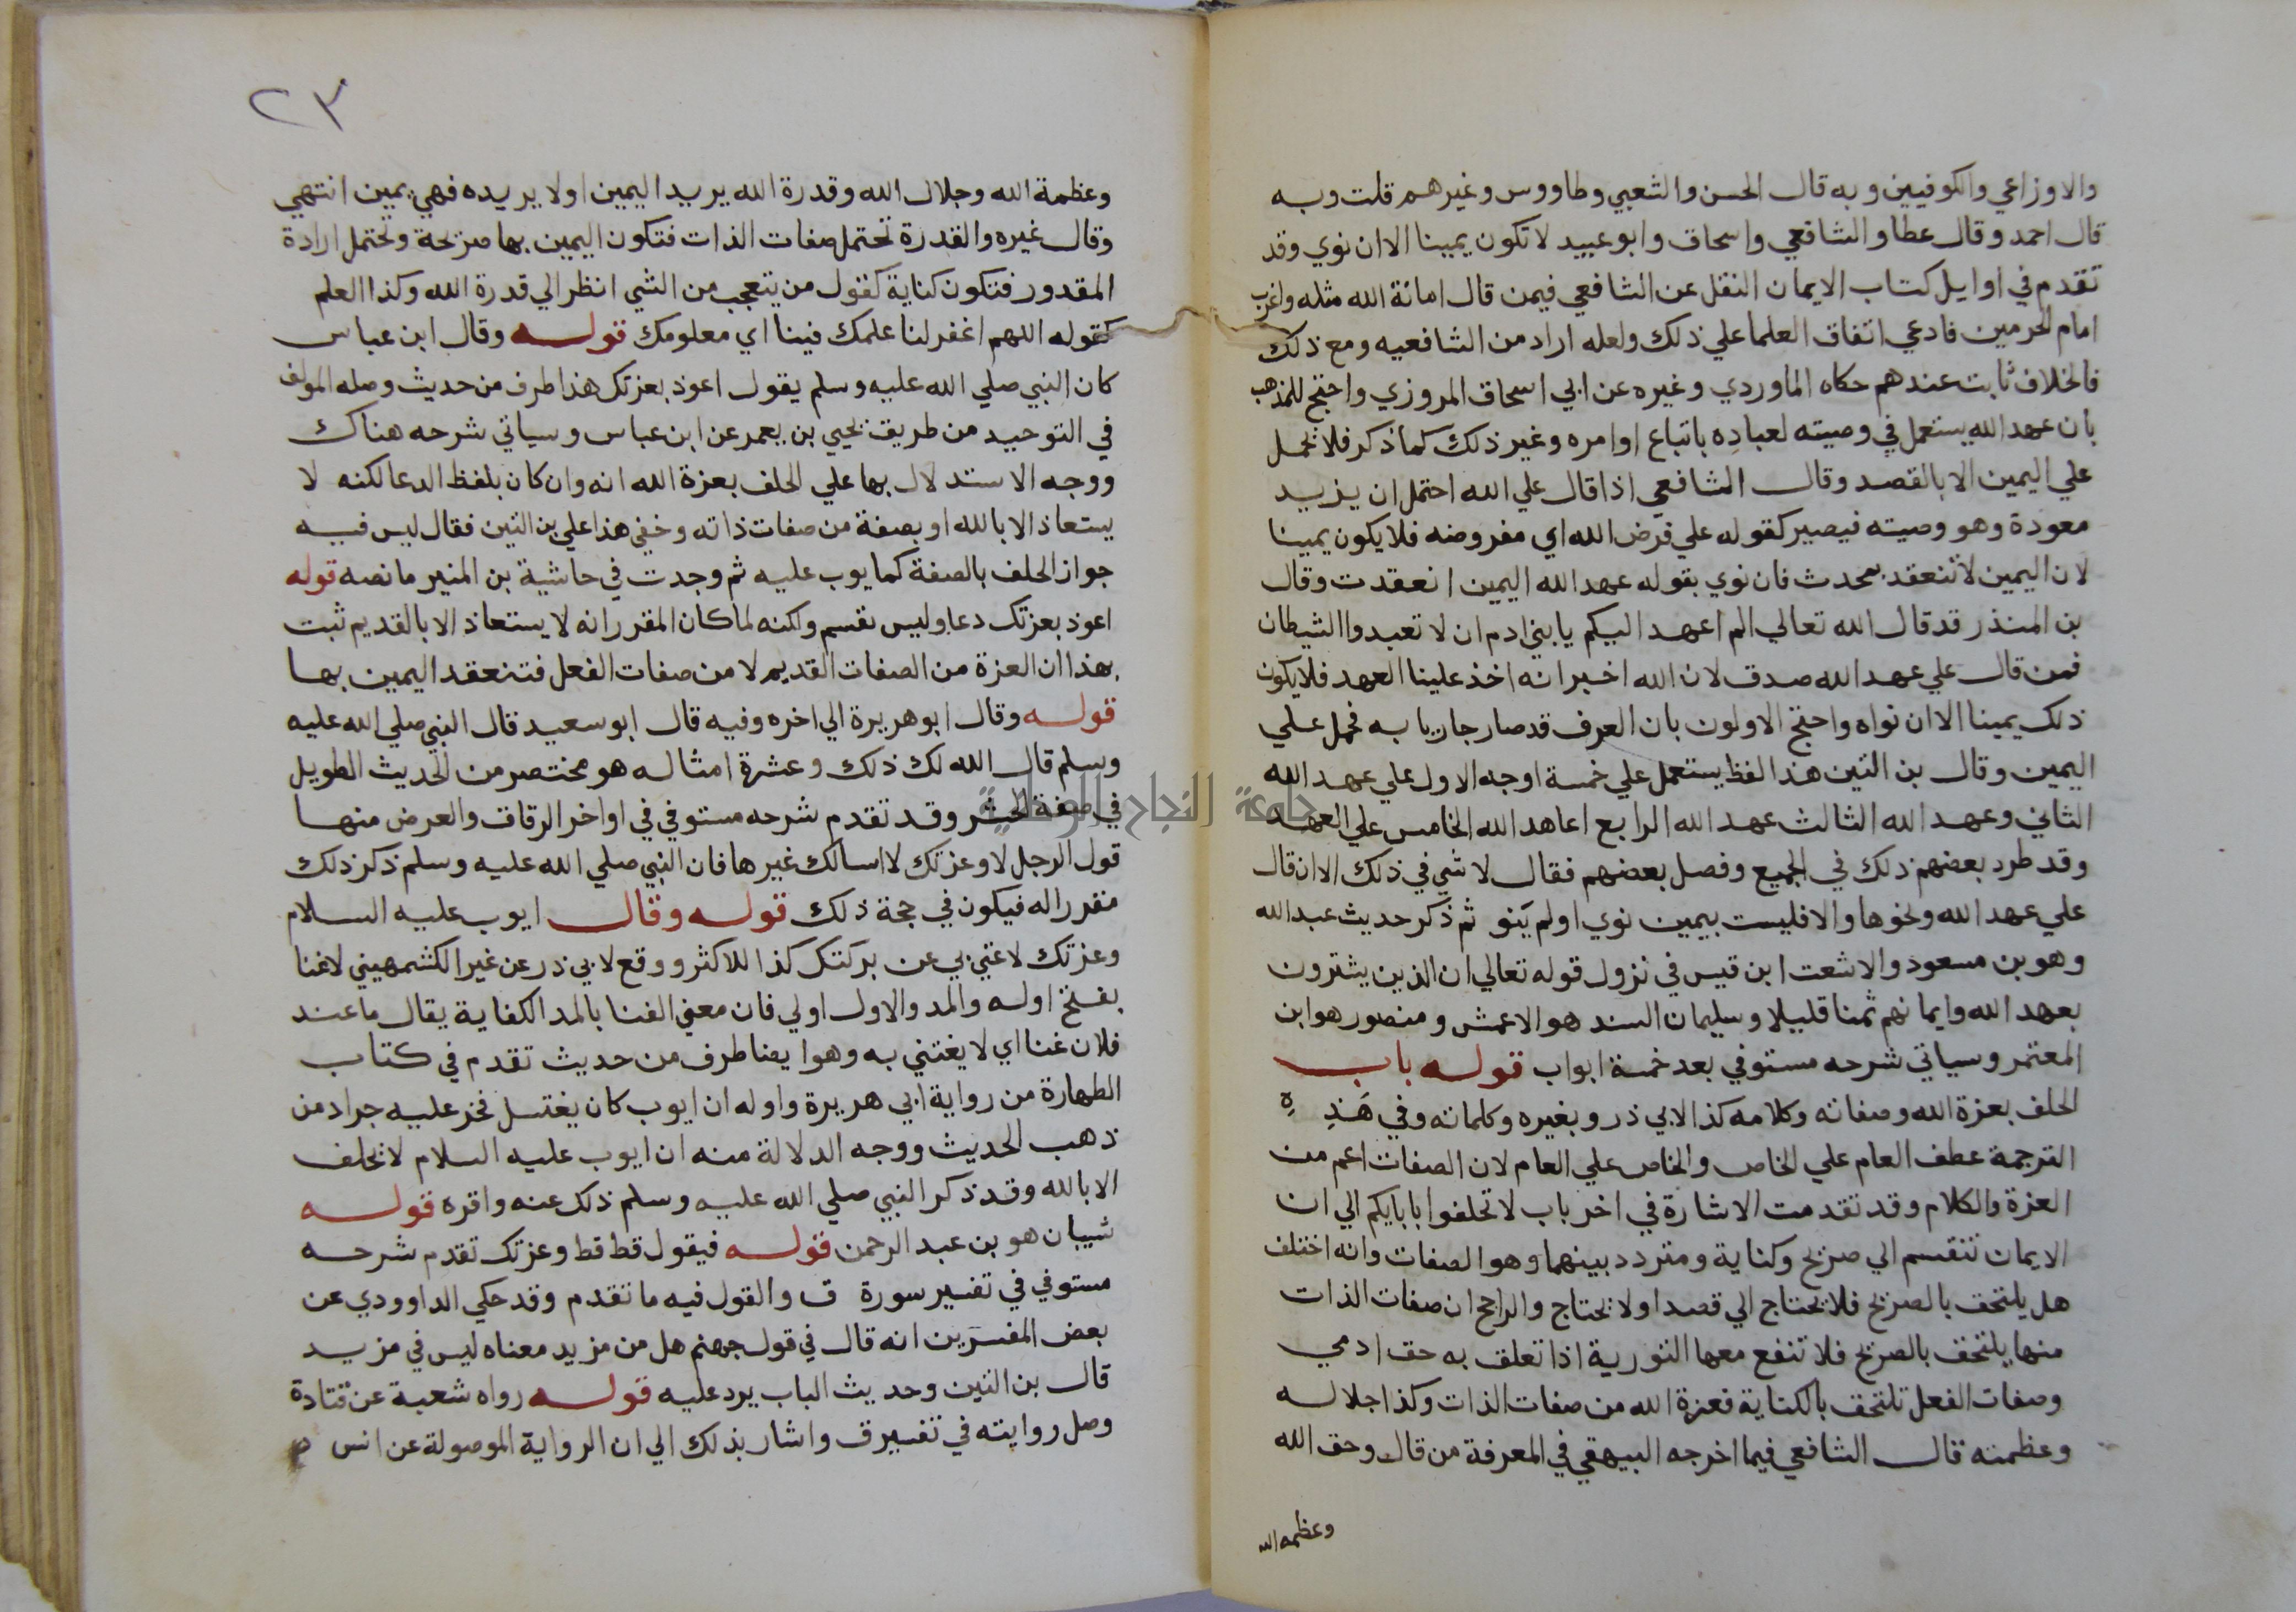 والاوزاعي والكوفيين وبه قال الحسن والشعبي وطاووس وغيرهم قلت وبه
قال احمد وقال عطا والشافعي واسحاق وابو عبيد لا تكون يمينا الا ان نوي وقد
تقدم في اوايل كتاب الايمان النقل عن الشافعي فيمن قال امانة الله مثله واغرب
امام الحرمين فادعي اتفاق العلما علي ذلك ولعله اراد من الشافعيه ومع ذلك
فالخلاف ثابت عندهم حكاه الماوردي وغيره عن ابي اسحاق المروزي واحتج للمذهب
بان عهد الله يستعمل في وصيته لعباده باتباع اوامره وغير ذلك كما ذكر فلا تحمل
علي اليمين الا بالقصد وقال الشافعي اذا قال علي الله احتمل ان يزيد
معودة وهو وصيته فيصير كقوله علي فرض الله اي مفروضه فلا يكون يمينا
لان اليمين لا تنعقد بمحدث فان نوي بقوله عهد الله اليمين انعقدت وقال
بن المنذر قد قال الله تعالي الم اعهد اليكم يا بني ادم ان لا تعبدوا الشيطان
فمن قال علي عهد الله صدق لان الله اخبر انه اخذ علينا العهد فلا يكون
ذلك يمينا الا ان نواه واحتج الاولون بان العرف قد صار جاريا به فحمل علي
اليمين وقال بن التين هذا لفظ يستعمل علي خمسة اوجه الاول علي عهد الله
الثاني وعهد الله الثالث عهد الله الرابع اعاهد الله الخامس علي العهد
وقد طرد بعضهم ذلك في الجميع وفصل بعضهم فقال لا شي في ذلك الا ان قال
علي عهد الله ونحوها والا فليست بيمين نوي او لم ينو ثم ذكر حديث عبد الله
وهو بن مسعود والاشعت ابن قيس في نزول قوله تعالي ان الذين يشترون
بعهد الله وايمانهم ثمنا قليلا وسليمان السند هو الاعمش ومنصور هو ابن
المعتمر وسياتي شرحه مستوفي بعد خمسة ابواب قوله باب
الحلف بعزة الله وصفاته وكلامه كذا لابي ذر وبغيره وكلماته وفي هَذِهِ
الترجمة عطف العام علي الخاص والخاص علي العام لان الصفات اعم من
العزة والكلام وقد تقدمت الاشارة في اخر باب لا تحلفوا بابايكم الي ان
الايمان تنقسم الي صريح وكناية ومتردد بينهما وهو الصفات وانه اختلف
هل يلتحق بالصريح فلا يحتاج الي قصد او لا يحتاج والراجح ان صفات الذات
منها يلتحق بالصريح فلا تنفع معها التورية اذا تعلق به حق ادمي
وصفات الفعل تلتحق بالكناية فعزة الله من صفات الذات وكذا جلاله
وعظمته قال الشافعي فيما اخرجه البيهقي في المعرفة من قال وحق الله
وعظمه الله
٢٣
وعظمة الله وجلال الله وقدرة الله يريد اليمين او لا يريده فهي يمين انتهي
وقال غيره والقدرة تحتمل صفات الذات فتكون اليمين بها صريحة وتحتمل ارادة
المقدور فتكون كناية كقول من يتعجب من الشي انظر الي قدرة الله وكذا العلم
كقوله اللهم اغفر لنا علمك فينا اي معلومك قوله وقال ابن عباس
كان النبي صلي الله عليه وسلم يقول اعوذ بعزتك هذا طرف من حديث وصله المولف
في التوحيد من طريق يحيي بن يعمر عن ابن عباس وسياتي شرحه هناك
ووجه الاستدلال بها علي الحلف بعزة الله انه وان كان بلفظ الدعا لكنه لا
يستعاذ الا بالله او بصفة من صفات ذاته وخفي هذا علي بن التين فقال ليس فيه
جواز الحلف بالصفة كما بوب عليه ثم وجدت في حاشية بن المنير ما نصه قوله
اعوذ بعزتك دعا وليس بقسم ولكنه لما كان المقرر انه لا يستعاذ الا بالقديم ثبت
بهذا ان العزة من الصفات القديم لا من صفات الفعل فتنعقد اليمين بها
قوله وقال ابو هريرة الي اخره وفيه قال ابو سعيد قال النبي صلي الله عليه
وسلم قال الله لك ذلك وعشرة امثاله هو مختصر من الحديث الطويل
في صفة الحشر وقد تقدم شرحه مستوفي في اواخر الرقاق والعرض منها
قول الرجل لا وعزتك لا اسالك غيرها فان النبي صلي الله عليه وسلم ذكر ذلك
مقررا له فيكون في حجة ذلك قوله وقال ايوب عليه السلام
وعزتك لا غني بي عن بركتك كذا للاكثر ووقع لابي ذر عن غير الكشمهيني لا غنا
بفتح اوله والمد والاول اولي فان معني الغنا بالمد الكفاية يقال ما عند
فلان غنا اي لا يغتني به وهو ايضا طرف من حديث تقدم في كتاب
الطهارة من رواية ابي هريرة واوله ان ايوب كان يغتسل فخر عليه جراد من
ذهب الحديث ووجه الدلالة منه ان ايوب عليه السلام لا يحلف
الا بالله وقد ذكر النبي صلي الله عليه وسلم ذلك عنه واقره قوله
شيبان هو بن عبد الرحمن قوله فيقول قط قط وعزتك تقدم شرحه
مستوفي في تفسير سورة ق والقول فيه ما تقدم وقد حكي الداوودي عن
بعض المفسرين انه قال في قول جهنم هل من مزيد معناه ليس في مزيد
قال بن التين وحديث الباب يرد عليه قوله رواه شعبة عن قتادة
وصل روايته في تفسير ق واشار بذلك الي ان الرواية الموصولة عن انس
جامعة النجاح الوطنية